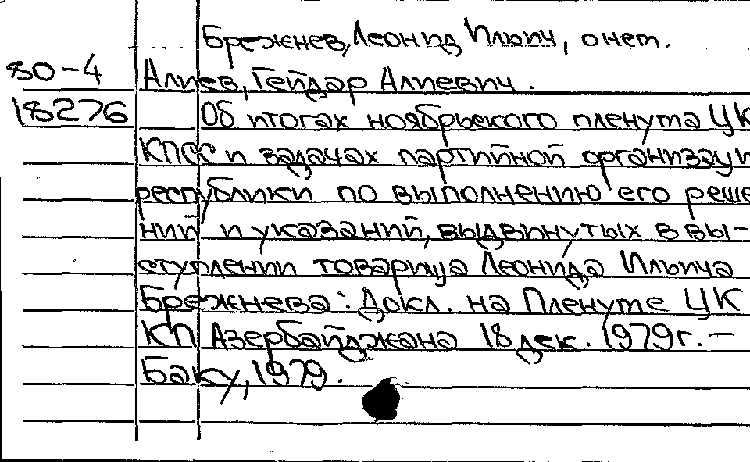 Брежнев, Леонид Ильич, о нем.
80-4 Алиев, Гейдар Алиевич.
18276 Об итогах ноябрьского пленума ЦК
КПСС и задачах партийной организаци
республики по выполнению его реше
ний и указаний, выдвинутых в вы-
ступлении товарища Леонида Ильича
Брежнева: Докл. на Пленуме ЦК
КП Азербайджана 18 дек. 1979г. –
Баку, 1979.